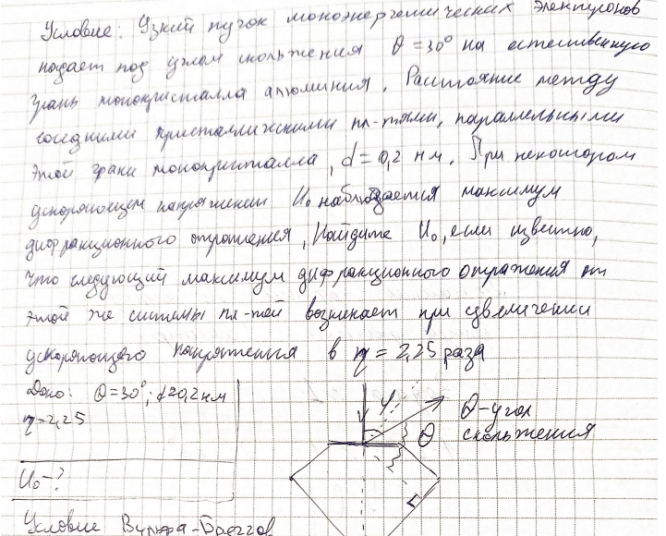 Условие: Узкий пучок моноэнергетических электронов
падает под углом скольжения θ = 30° на естественную
грань монокристалла алюминия. Расстояние между
соседними кристаллическими пл-тями, параллельными
этой грани монокристалла, d = 0,2 нм. При некотором
ускоряющем напряжении U₀ наблюдается максимум
дифракционного отражения, Найдите U₀, если известно,
что следующий максимум дифракционного отражения от
этой же системы пл-тей возникает при увеличении
ускоряющего напряжения в η = 2,25 раза
Дано: θ=30°; d=0,2 нм
η=2,25
U₀-?
φ
θ
θ-угол
скольжения
Условие Вульфа-Брэггов